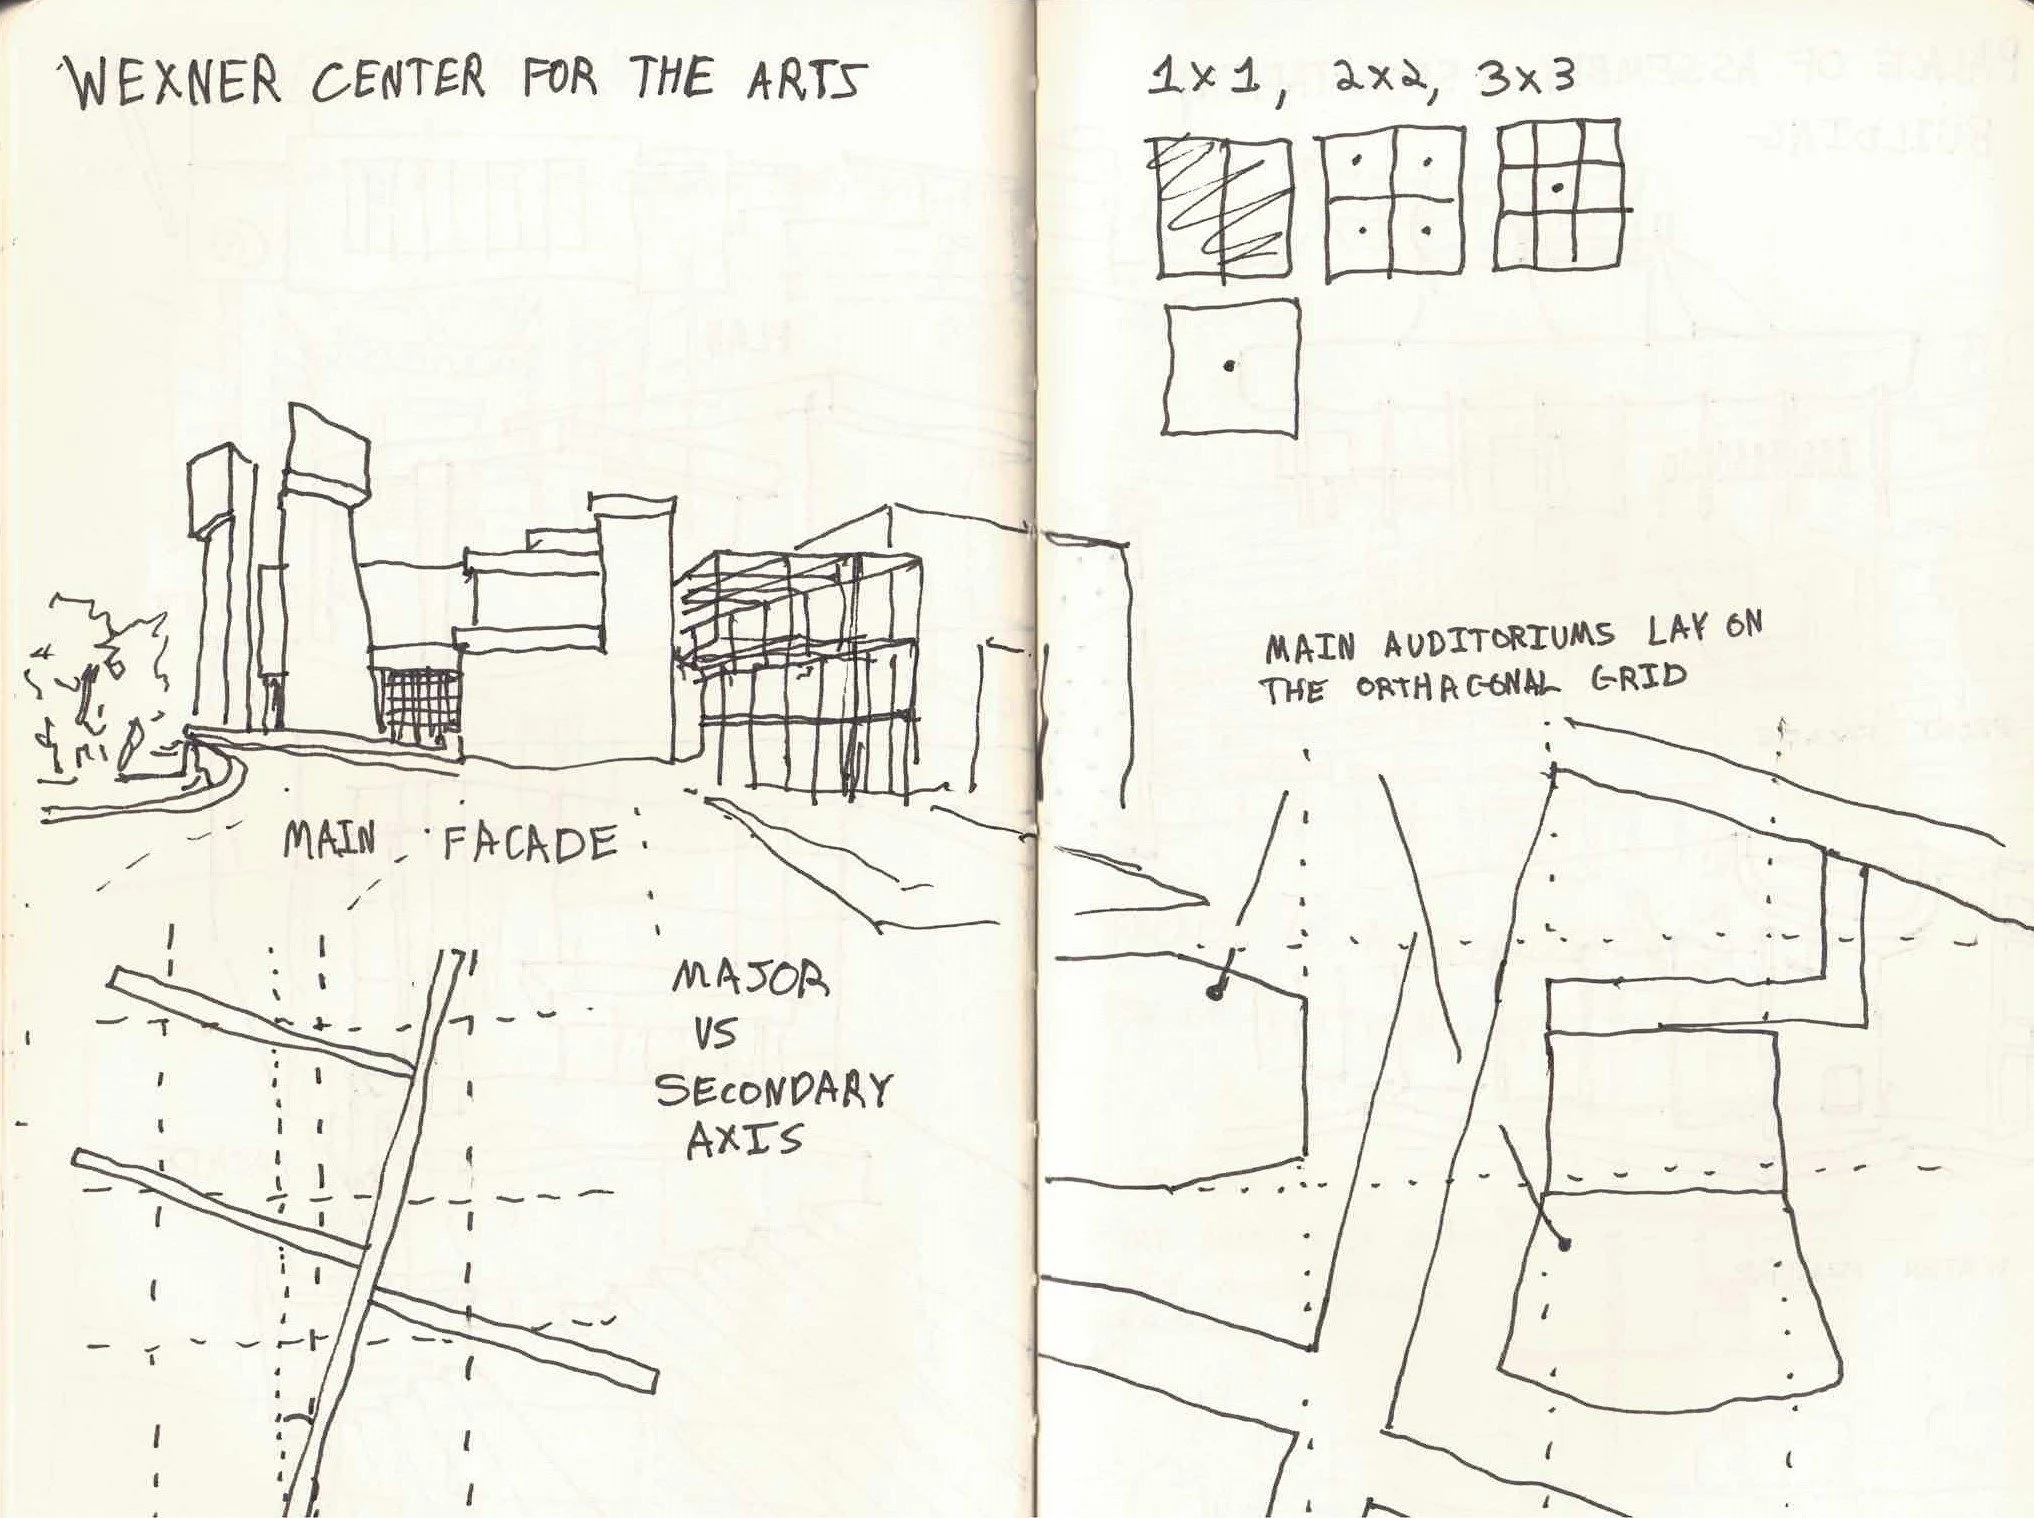 WEXNER CENTER FOR THE ARTS
MAIN FACADE
MAJOR
VS
SECONDARY
AXIS
1x1, 2x2, 3x3
MAIN AUDITORIUMS LAY ON
THE ORTHAGONAL GRID